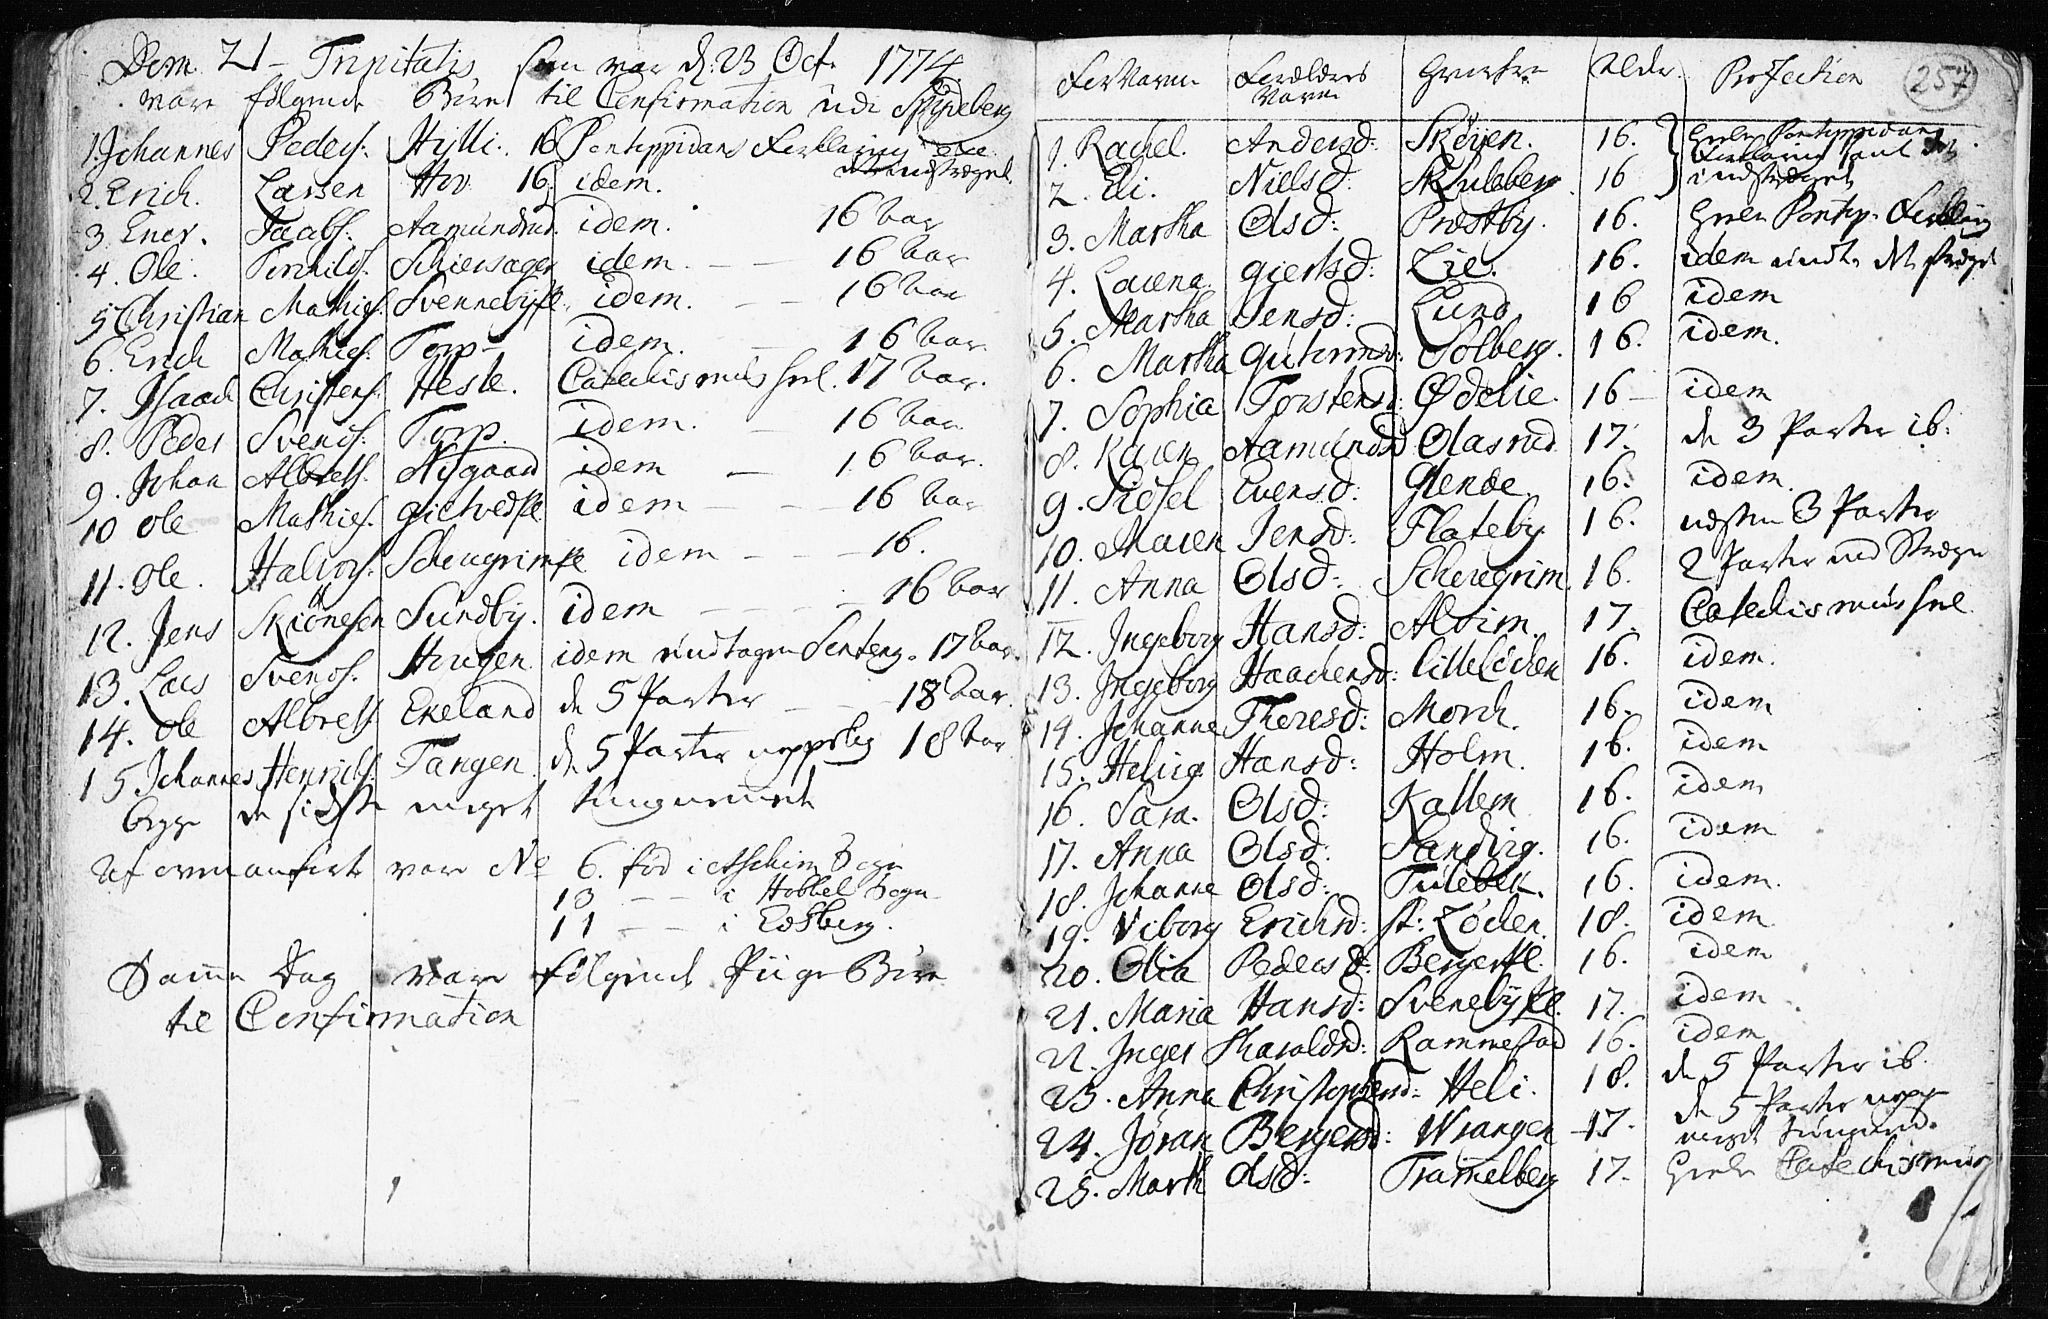 Dom. 21 Trinitatis som var d: 23 Oct. 1774
vare følgende Børn til Confirmation udi Spydeberg
1. Johannes Peders: Hylli. 16 Pontoppidans Forklaring
indstræget.
2. Erich. Larsen Hov 16 idem.
3. Ener. Jacobs: Aamundrud idem. 16 Aar
4. Ole. Torchilds: Schiersager idem. — — 16 Aar
5 Christian Mathies. Svennebyje. idem. — 16 Aar
6. Erich Mathies. Torp idem. — 16 Aar.
7. Isaach Christens: Hesle. Catechismus hel. 17 Aar.
8. Peder Svends: Torp. idem. — 16 Aar.
9. Johan Albrets. Nygaard idem — 16 Aar.
10 Ole Mathies. idem — — — 16 Aar
11. Ole. Halvors. idem — — — 16.
12. Jens Skiönesen Sundby. idem — — — — 16 Aar
13. Lars Svends. Hougen idem undtagen 17 Aar.
14. Ole Albrets Ekeland de 5 Parter — — 18 Aar.
15. Johannes Henrichs. Tangen de 5 Parter 18 Aar
begge de sidste meget
Af ovenanførte vare No 6. fød i Aschim Sogn
13 — — i Hobbel Sogn
11 — — i Edsberg.
Samme Dag vare følgende Piige Børn
til Confirmation
257
For Navne Forældres Navne Alder. Profection
1. Rachel. Andersd: Skøyen. 16. Heele Pontoppidans
Forklaring samt det
indstrægede
2. Eli. Nielsd: 16
3. Martha Olsd: Prestby. 16. Heele Pontop. Forklaring
4. Lovena Giertsd: Lie. 16. idem undt. det stræget
5. Martha Jensd: Lund 16 idem
6. Martha Solberg. 16. idem.
7. Sophia Torstensd: Ødelie. 16 — idem
8. Karen Aamundsd Olasrud 17. de 3 Parter ib:
9. Sidsel Evensd: Glende 16. idem.
10. Maren Jensd: Flateby. 16. næsten 3 Parter
11. Anna Olsd: Schevgrim. 16. 2 Parter med Stræget
12. Ingeborg Hansd: Alvim. 17. Catechismus hel
13. Ingeborg Haachensd: Lilleløchen 16. idem.
14. Johanne Thoresd: Morch. 16. idem
15. Helvig Hansd: Holm. 16. idem
16. Sara. Olsd: Kallem 16. idem
17. Anna Olsd: Sandvig. 16. idem
18. Johanne Olsd: Tulebek. 16. idem.
19. Viborg Erichsd: st: Løchen. 18. idem
20. Olia Pedersd: 16. idem
21. Maria Hansd: 17. idem
22. Inger Haraldsd: Rammestad 16. idem
23. Anna Christophersd: Heli. 18. de 5 Parter ib.
24. Jøran Bergersd: Wrangen 17. de 5 Parter
meget
25. Marth Olsd: Tramelberg 17. Heele Catechismus